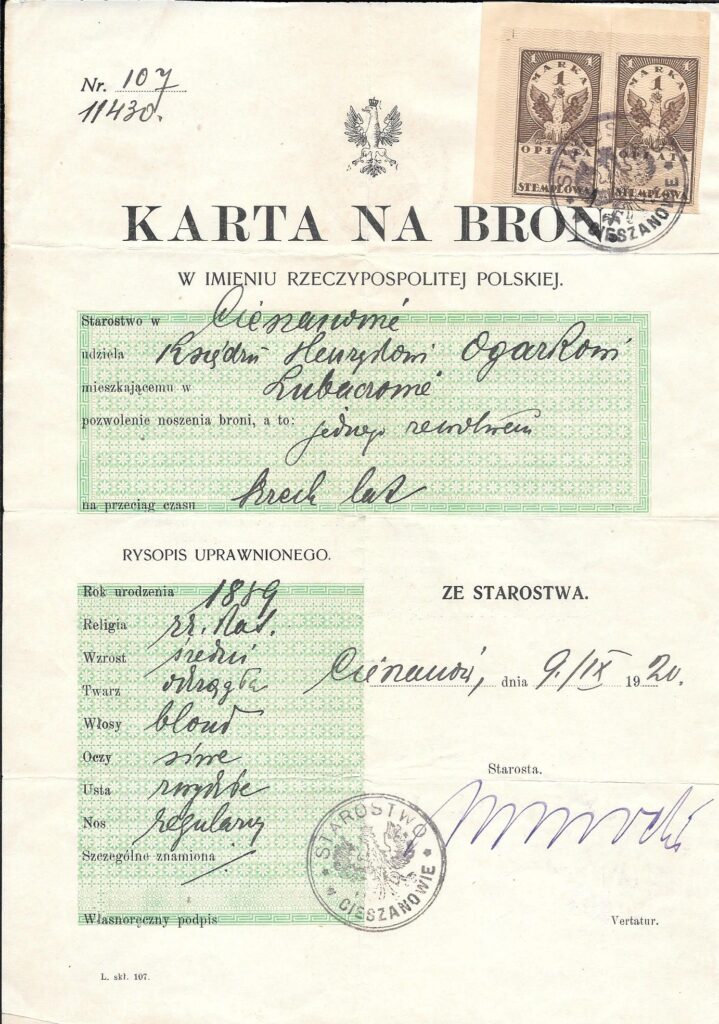 Nr. 107
11430.
1 MARKA 1
1
OPŁATA
STEMPLOWA
1 MARKA 1
1
OPŁATA
STEMPLOWA
STAROSTWO CIESZANOWIE
KARTA NA BROŃ
W IMIENIU RZECZYPOSPOLITEJ POLSKIEJ.
Starostwo w Cieszanowie
udziela Księdzu Henrykowi Ogarkowi
mieszkającemu w Lubaczowie
pozwolenie noszenia broni, a to: jednego rewolweru
na przeciąg czasu trzech lat
RYSOPIS UPRAWNIONEGO.
Rok urodzenia 1889
Religia rz. kat.
Wzrost średni
Twarz okrągła
Włosy blond
Oczy siwe
Usta zwykłe
Nos regularny
Szczególne znamiona
Własnoręczny podpis
ZE STAROSTWA.
Cieszanów, dnia 9./IX 1920.
Starosta.
STAROSTWO CIESZANOWIE
Vertatur.
L. skł. 107.